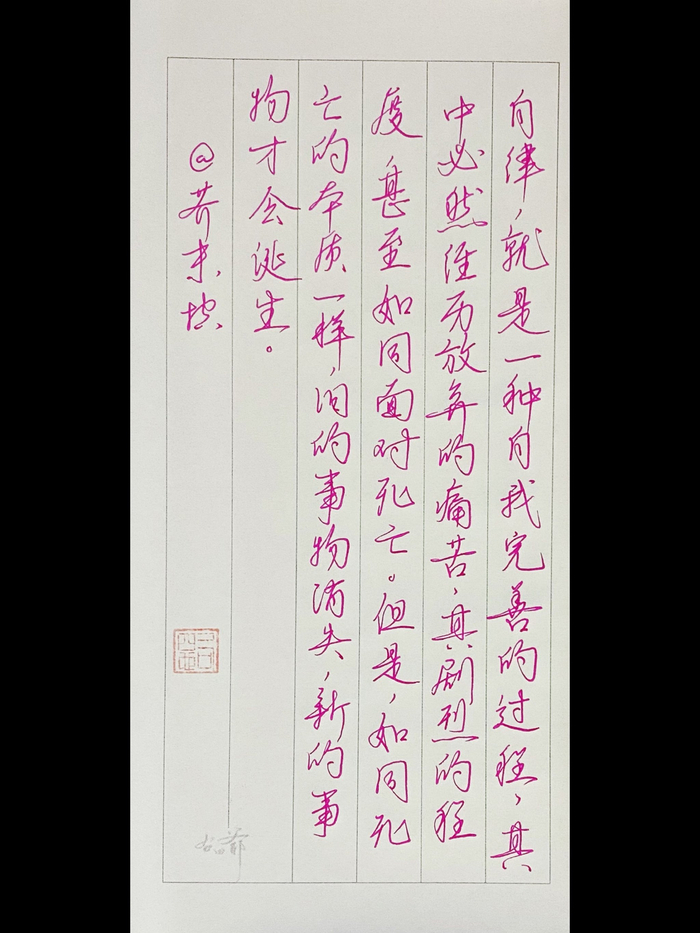 自律，就是一种自我完善的过程，其
中必然经历放弃的痛苦，其剧烈的程
度，甚至如同面对死亡。但是，如同死
亡的本质一样，旧的事物消失，新的事
物才会诞生。
@芥末坡